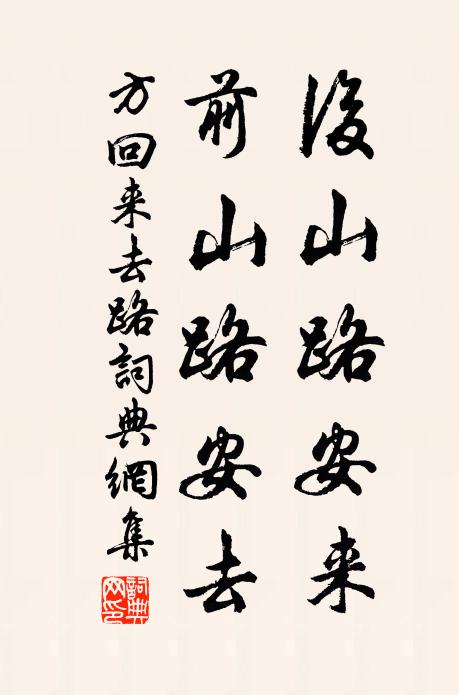 後山路安来
前山路安去
方回来去路詞典網集
詞典網印